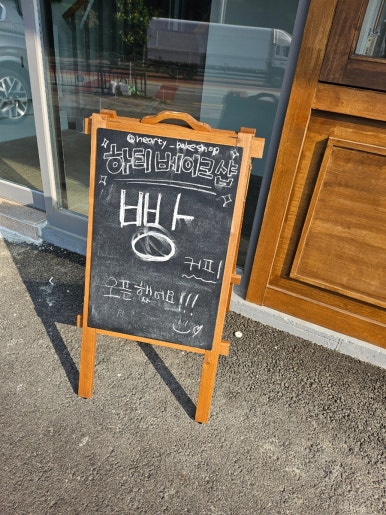 @hearty_bakeshop
하티 베이크샵
빵
커피
오픈했어요!!!